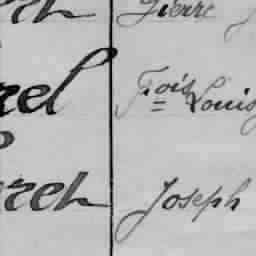 ret Pierre
rel Frois Louis
ret Joseph